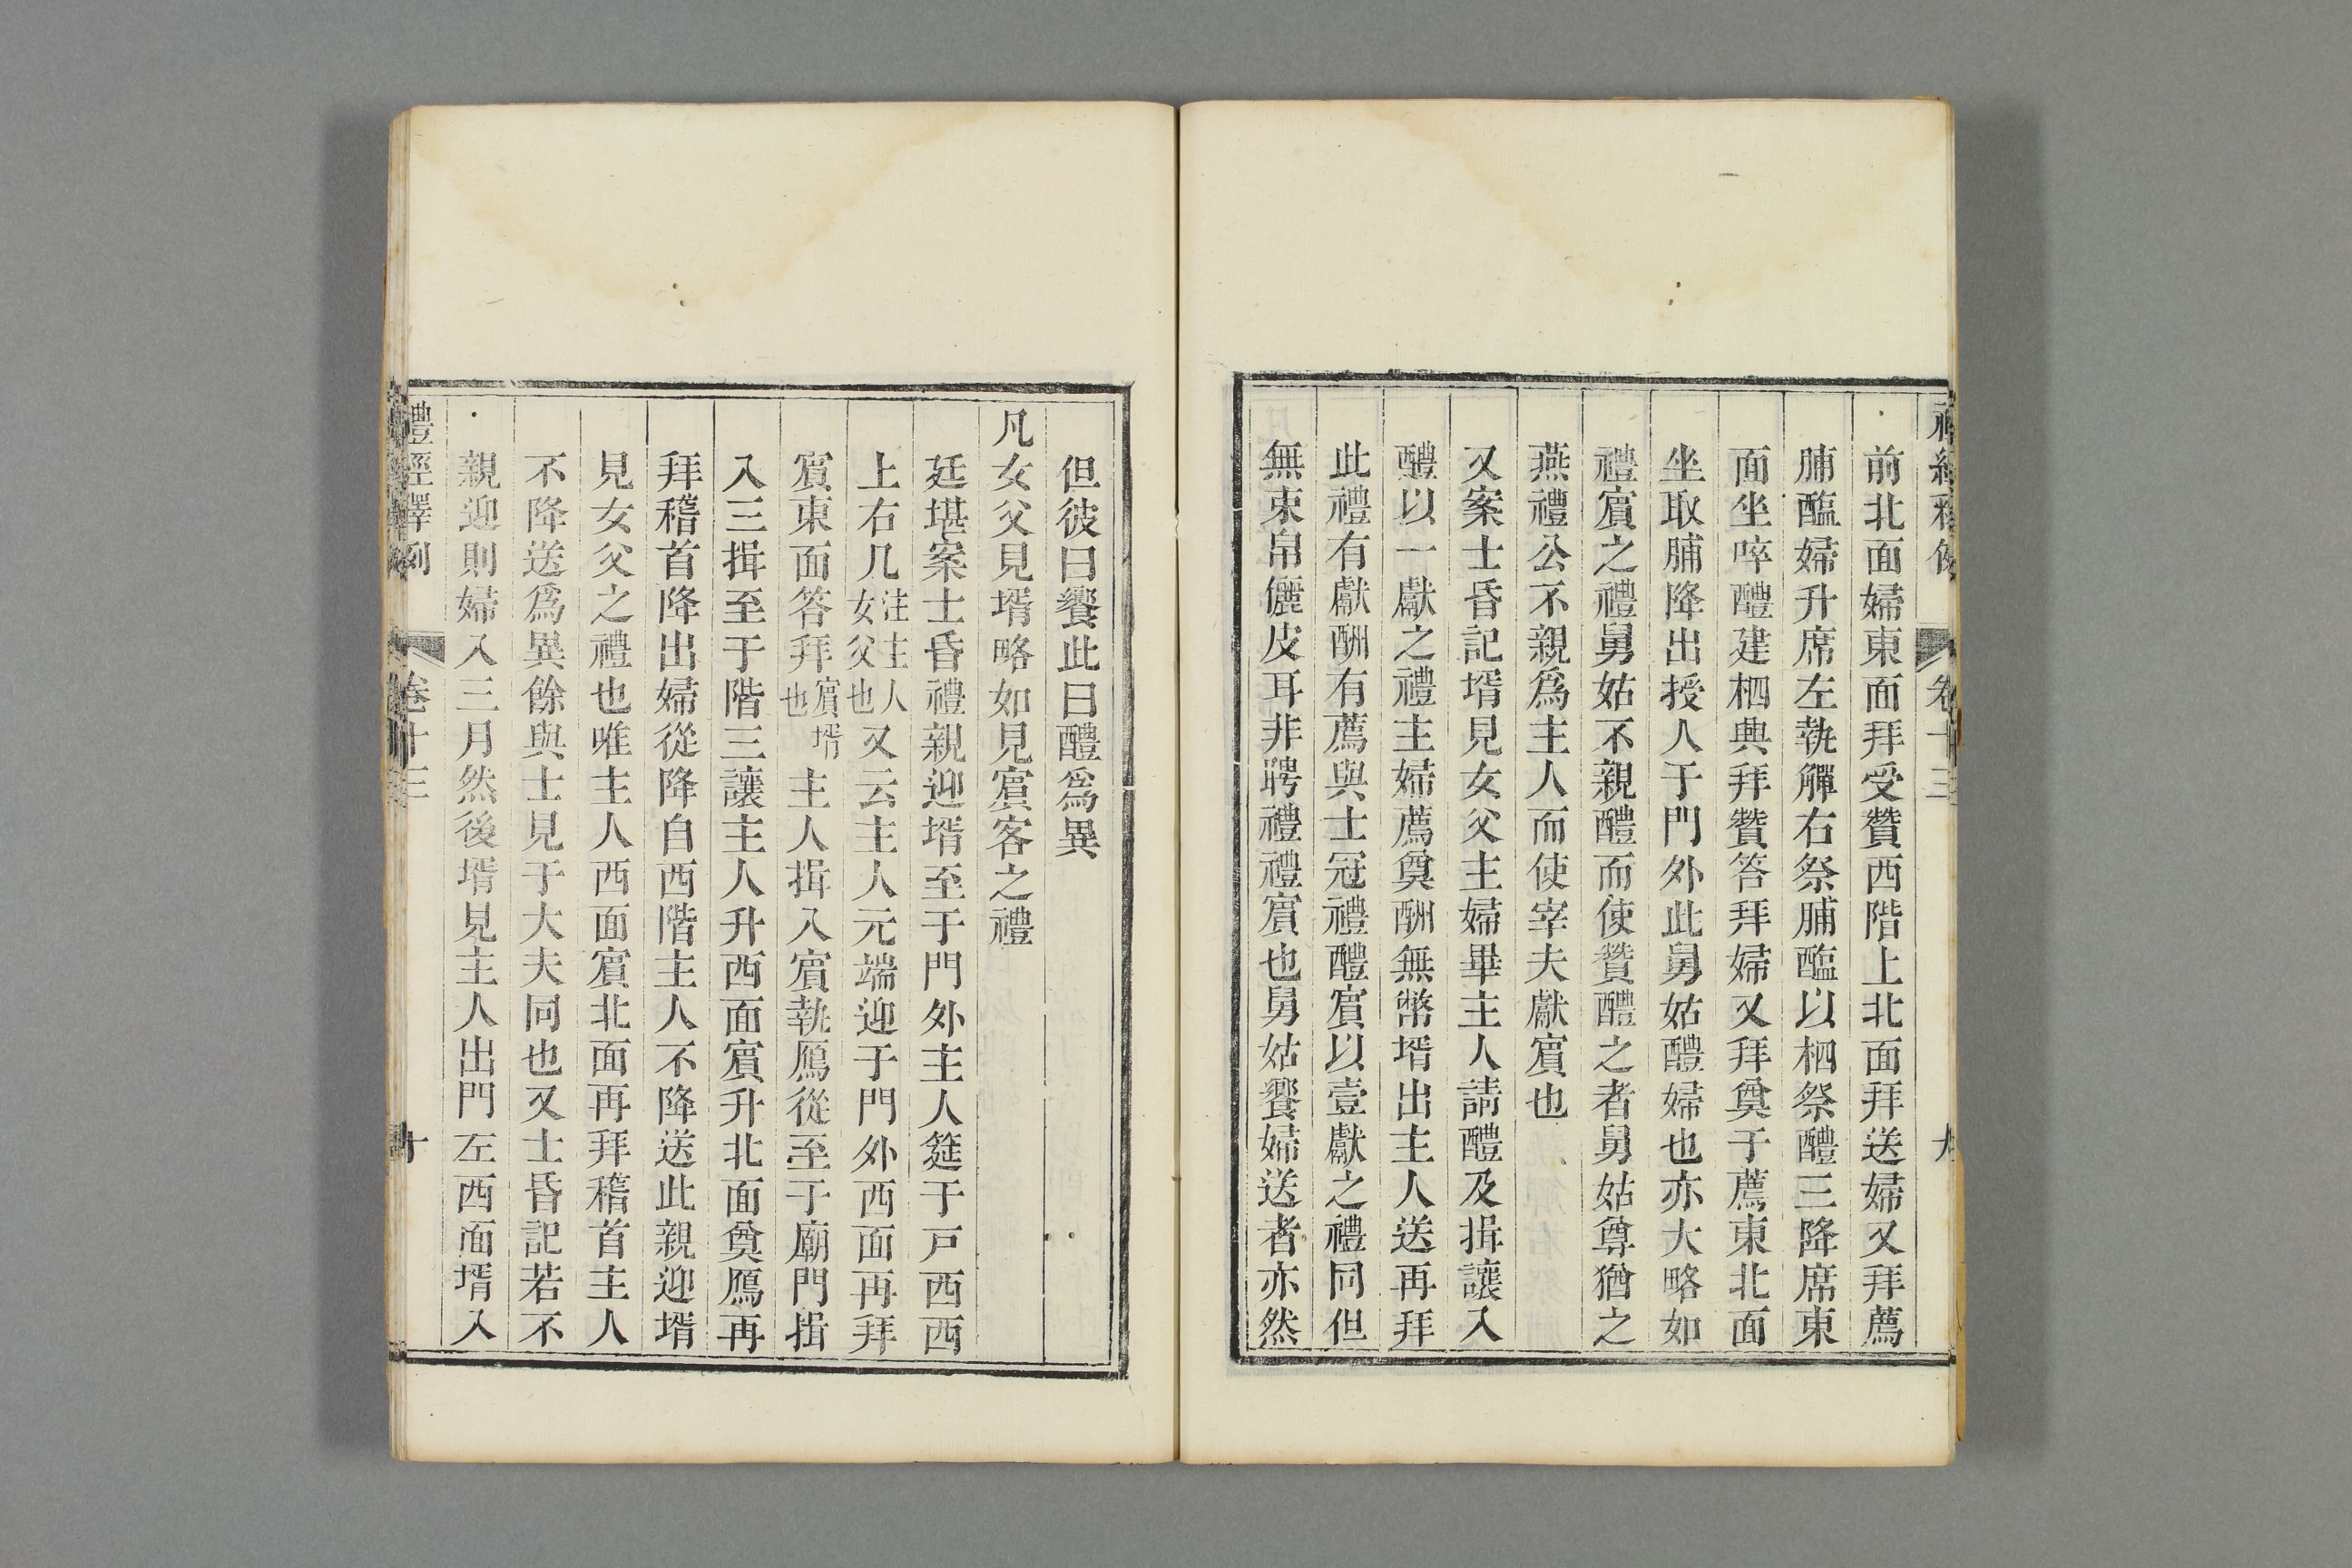 禮經釋例 卷十三 九
前北面婦東面拜受贊西階上北面拜送婦又拜薦
脯醢婦升席左執觶右祭脯醢以柶祭醴三降席東
面坐啐醴建柶興拜贊答拜婦又拜奠于薦東北面
坐取脯降出授人于門外此舅姑醴婦也亦大略如
禮賓之禮舅姑不親醴而使贊醴之者舅姑尊猶之
燕禮公不親爲主人而使宰夫獻賓也
又案士昏記壻見女父主婦畢主人請醴及揖讓入
醴以一獻之禮主婦薦奠酬無幣壻出主人送再拜
此禮有獻酬有薦與士冠禮醴賓以壹獻之禮同但
無束帛儷皮耳非聘禮禮賓也舅姑饗婦送者亦然
但彼曰饗此曰醴爲異
凡女父見壻略如見賓客之禮
廷堪案士昏禮親迎壻至于門外主人筵于戸西西
上右几注主人女父也又云主人元端迎于門外西面再拜
賓東面答拜賓壻也主人揖入賓執鴈從至于廟門揖
入三揖至于階三讓主人升西面賓升北面奠鴈再
拜稽首降出婦從降自西階主人不降送此親迎壻
見女父之禮也唯主人西面賓北面再拜稽首主人
不降送爲異餘與士見于大夫同也又士昏記若不
親迎則婦入三月然後壻見主人出門左西面壻入
禮經釋例 卷十三 十